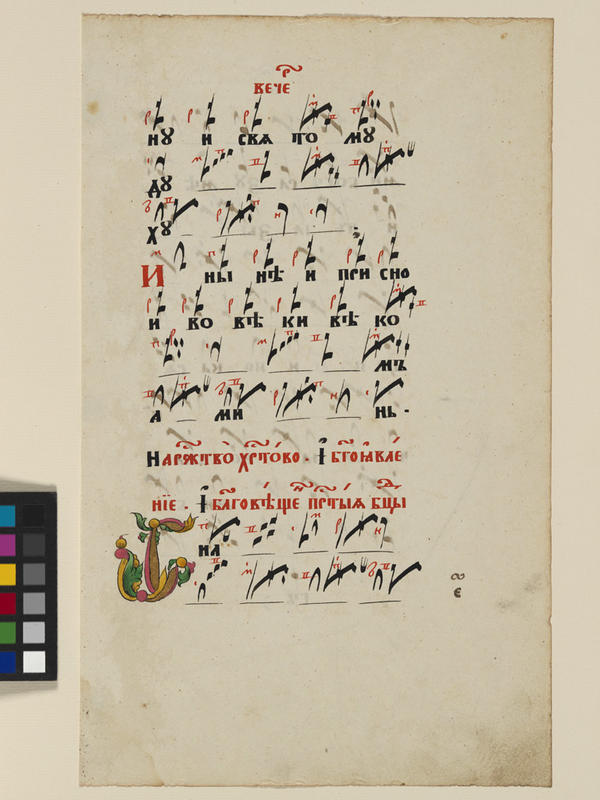 вечеⷬ҇
нꙋ и свѧ то мꙋ
дꙋ
хꙋ
И ны нѣ и при сно
и во вѣ ки вѣ ко
мъ
а ми нь·
На рж҇тво хрⷭ҇тово· і҆ бг҃оꙗвле́
нїе· І҆ бл҃гове́ще нⷩ҇ прⷭ҇тыѧ бцⷣы
на
є